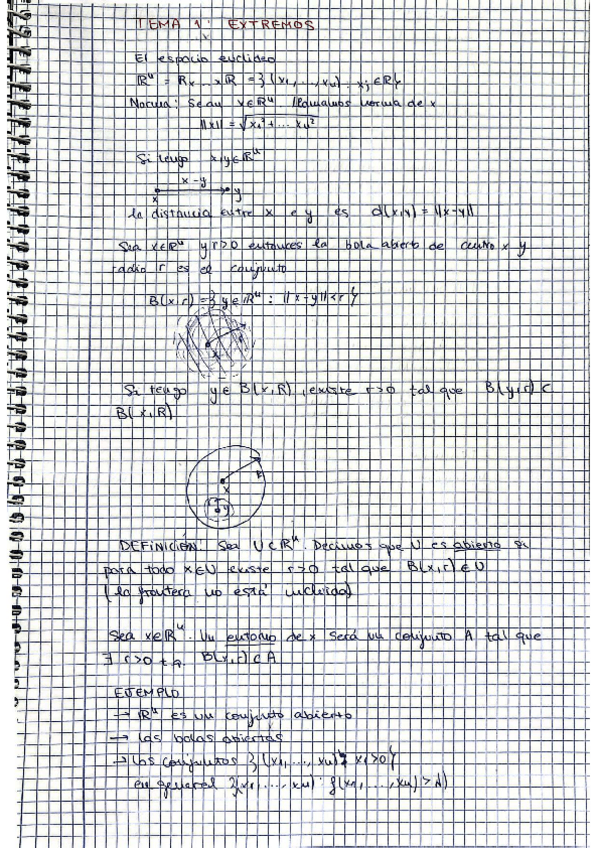 TEMA 1: EXTREMOS
El espacio euclideo
ℝⁿ = ℝx...xℝ = {(x₁,...,xₙ) : xⱼ ∈ ℝ}
Norma: Sean x∈ℝⁿ llamamos norma de x
||x|| = √x₁²+...xₙ²
Si tengo x,y∈ℝⁿ
x-y
x y
la distancia entre x e y es d(x,y) = ||x-y||
Sea x∈ℝⁿ y r>0 entonces la bola abierta de centro x y
radio r es el conjunto
B(x,r) = {y∈ℝⁿ : ||x-y||<r}
x
Si tengo y∈ B(x,R), existe r>0 tal que B(y,r) ⊂
B(x,R)
R
x
y
DEFINICIÓN: Sea U⊂ℝⁿ. Decimos que U es abierto si
para todo x∈U existe r>0 tal que B(x,r) ∈ U
(la frontera no está incluida)
Sea x∈ℝⁿ. Un entorno de x será un conjunto A tal que
∃ r>0 t.q. B(x,r) ⊂ A
EJEMPLO
→ ℝⁿ es un conjunto abierto
→ las bolas abiertas
→ los conjuntos {(x₁,...,xₙ) : x₁>0}
en general {(x₁,...,xₙ) : f(x₁,...,xₙ) >